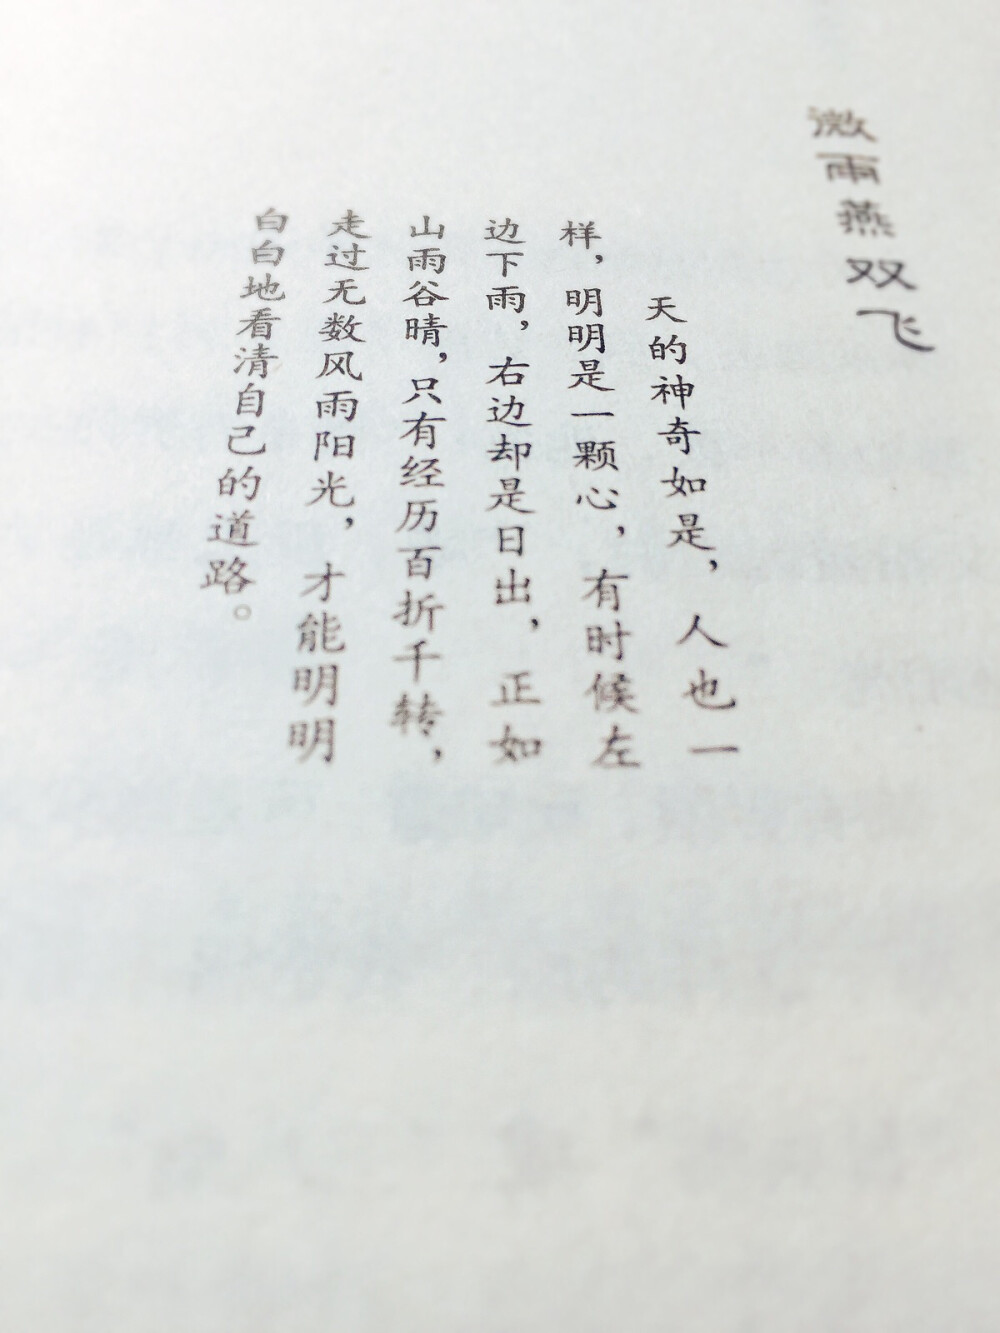 微雨燕双飞
天的神奇如是，人也一
样，明明是一颗心，有时候左
边下雨，右边却是日出，正如
山雨谷晴，只有经历百折千转，
走过无数风雨阳光，才能明明
白白地看清自己的道路。